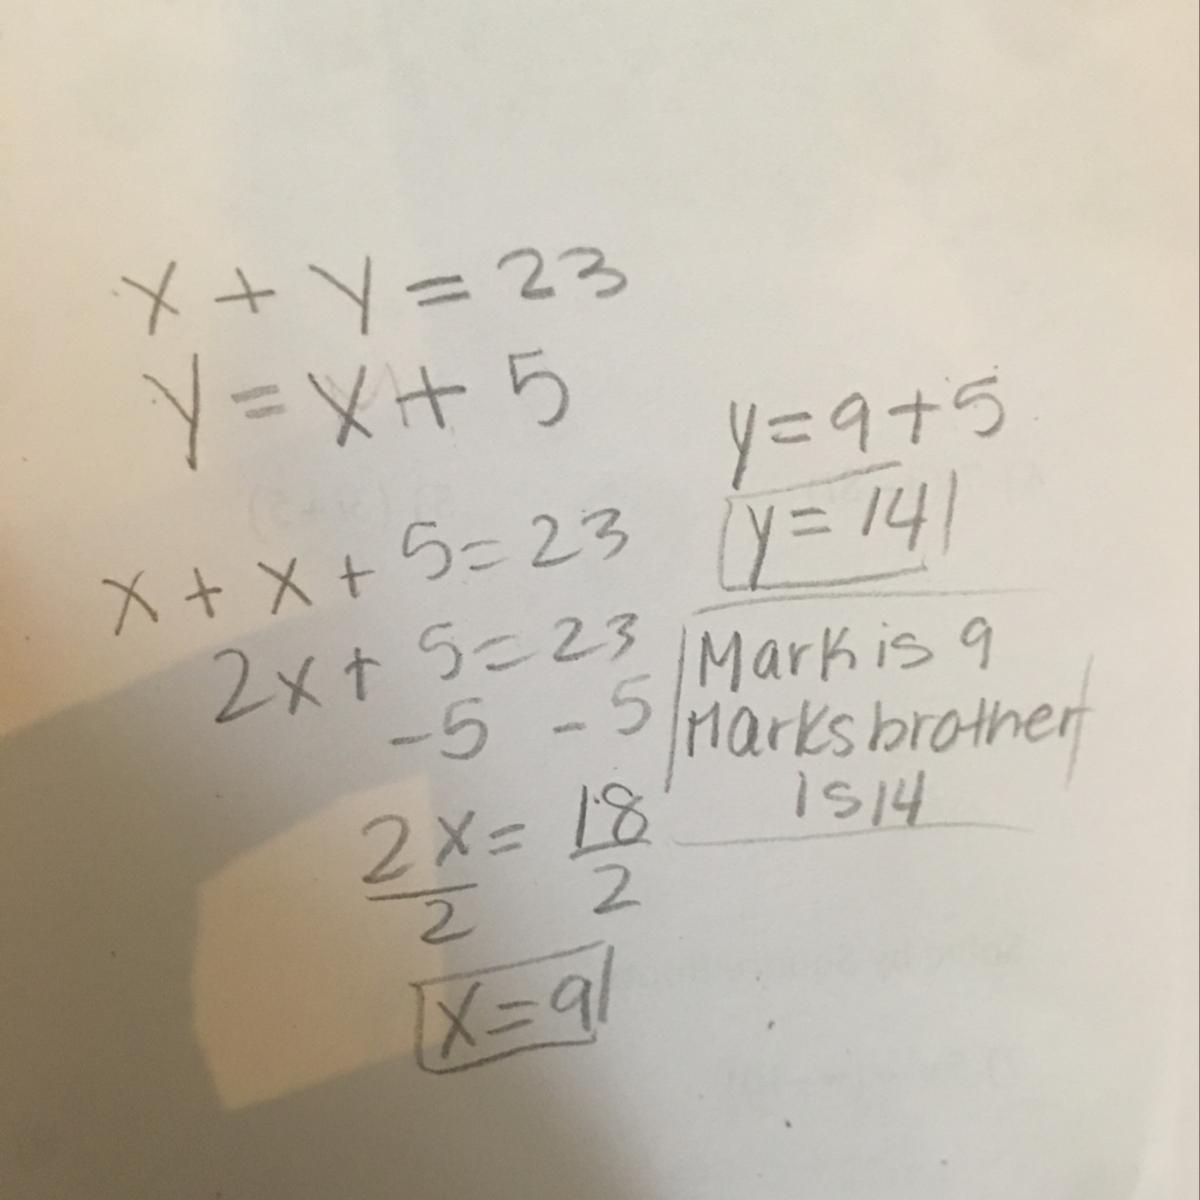 x + y = 23
y = x + 5
x + x + 5 = 23
2x + 5 = 23
-5 - 5
2x = 18
2 2
x = 9
y = 9 + 5
y = 14
Mark is 9
Marks brother
is 14